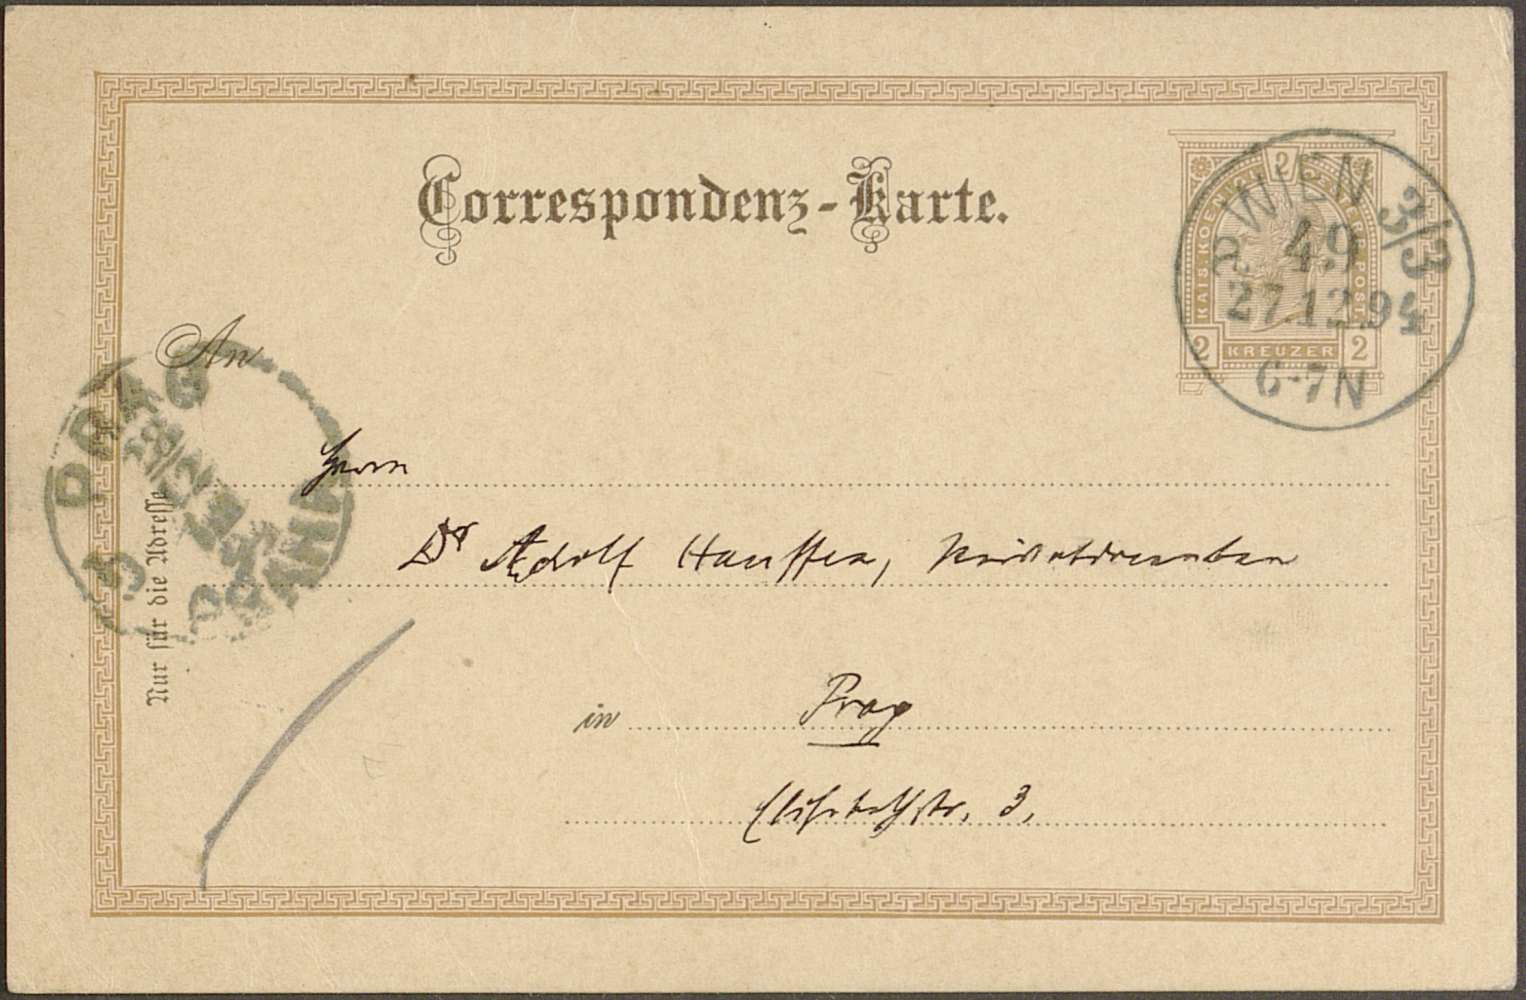 Correspondenz-Karte.
2
KAIS. KOEN. ÖSTERR. POST.
2 KREUZER 2
WIEN 3/3
49
27.12.94
6-7N
An
PRAG
Nur für die Adresse
Herrn
Dr Adolf Hauffen, Privatdocenten
in Prag
Elisabethstr. 3.